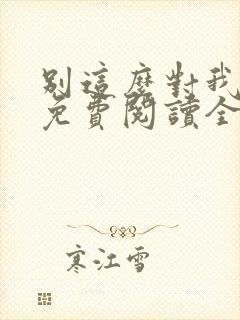 別這麼對我
免費閱讀全
寒江雪